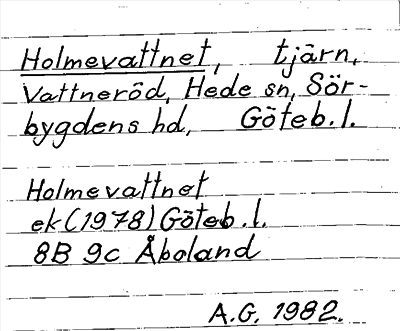 Holmevattnet, tjärn,
Vattneröd, Hede sn, Sör-
bygdens hd, Göteb. l.
Holmevattnet
ek (1978) Göteb. l.
8B 9c Åboland
A.G. 1982.